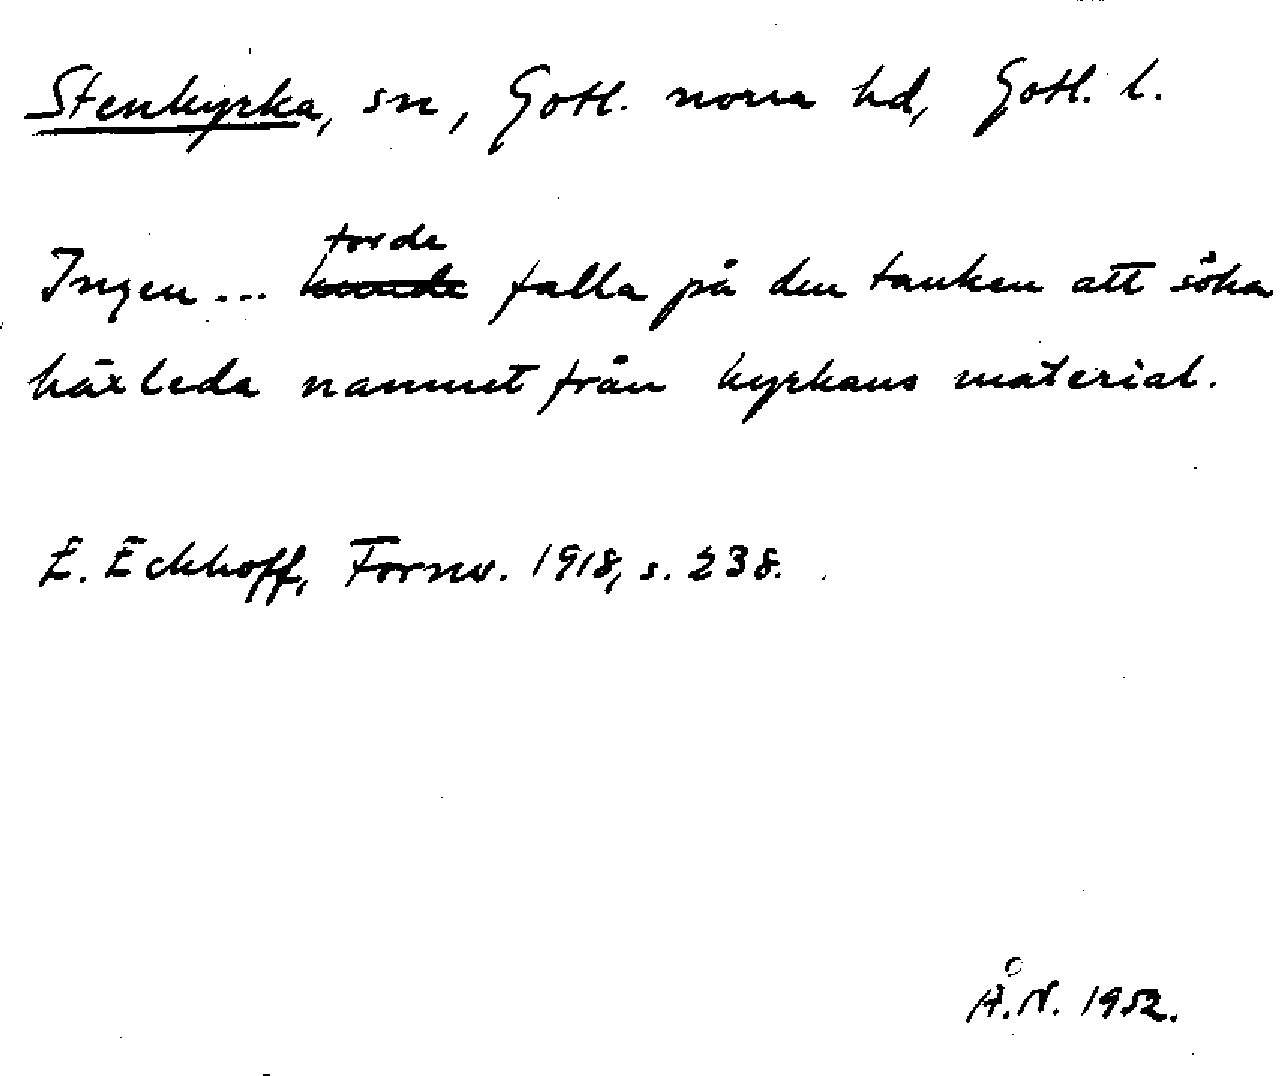 Stenkyrka, sn, Gotl. norra hd, Gotl. l.
torde
Ingen... kunde falla på den tanken att söka
härleda namnet från kyrkans material.
E. Eckhoff, Fornv. 1918, s. 238.
Å.N. 1952.